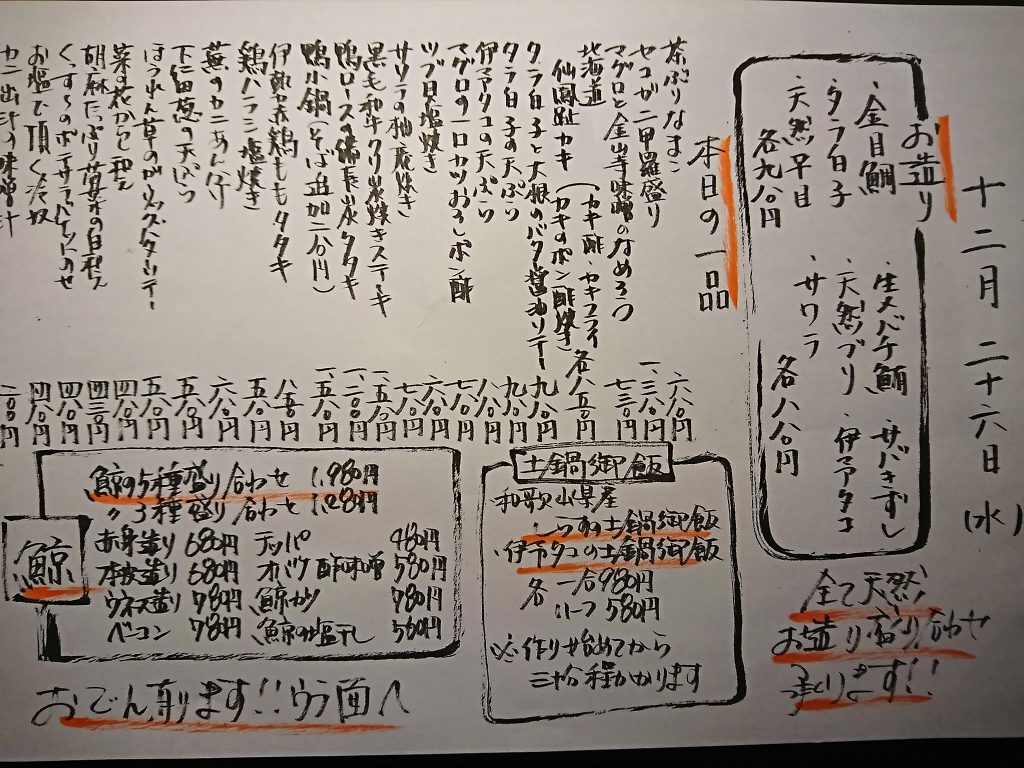 十二月二十六日(水)
お造り
・金目鯛
・タラ白子
・天然平目
各九八〇円
・生メバチ鮪
・サバきずし
・天然ブリ
・伊予タコ
・サワラ
各八八〇円
全て天然
お造り盛り合わせ
承ります!!
本日の一品
茶ぶりなまこ 六八〇円
セコガニ甲羅盛り 一、三八〇円
マグロと金山寺味噌のなめろう 七三〇円
北海道
仙鳳趾カキ(カキ酢・カキフライ
カキのポン酢焼き) 各八五〇円
タラ白子と大根のバタ醤油ソテー 九八〇円
タラ白子の天ぷら 九八〇円
伊予タコの天ぷら 八八〇円
マグロの一口カツおろしポン酢 七八〇円
ツブ貝塩焼き 六八〇円
サワラの柚庵焼き 七八〇円
黒毛和牛クリ炭焼きステーキ 一、五八〇円
鴨ロースの備長炭タタキ 一、二〇〇円
鴨小鍋(そば追加二八〇円) 一、五八〇円
伊勢赤鶏ももタタキ 八五〇円
鶏ハラミ塩焼き 五八〇円
蕪のカニあん 六八〇円
下仁田葱の天ぷら 五八〇円
ほうれん草のガーリックバターソテー 五八〇円
菜の花からし和え 四八〇円
胡麻たっぷり 白和え 四三〇円
くんせいポテサラ のせ 四八〇円
お塩で頂く冷奴 四八〇円
カニ出汁の味噌汁 二〇〇円
土鍋御飯
和歌山県産
しらすの土鍋御飯
・伊予タコの土鍋御飯
各 一合980円
ハーフ580円
※作り始めてから
三十分程かかります
鯨
鯨の5種盛り合わせ 1,980円
〃3種盛り合わせ 1,280円
赤身造り 680円
本皮造り 680円
ウネス造り 780円
ベーコン 780円
テッパ 480円
オバケ酢味噌 580円
鯨カツ 780円
鯨の塩干し 560円
おでん有ります!!ウラ面へ